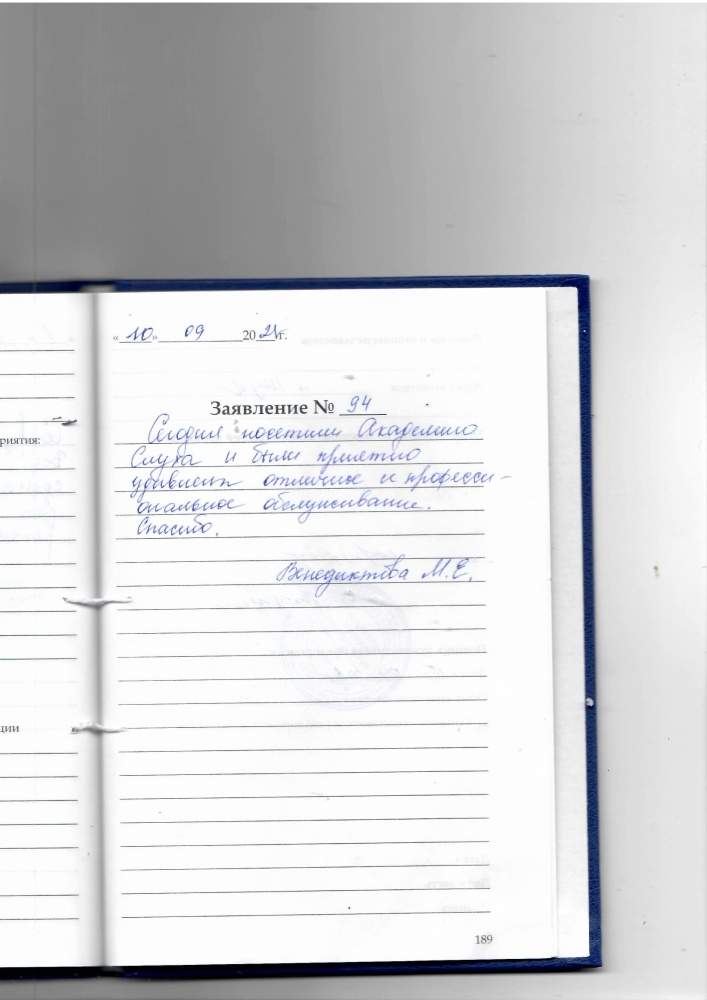 «10» 09 2021г.
Заявление № 94
Сегодня посетили Академию
Слуха и были приятно
удивлены отличное и професси-
ональное обслуживание.
Спасибо.
Венедиктова М.Е.
риятия:
ции
189